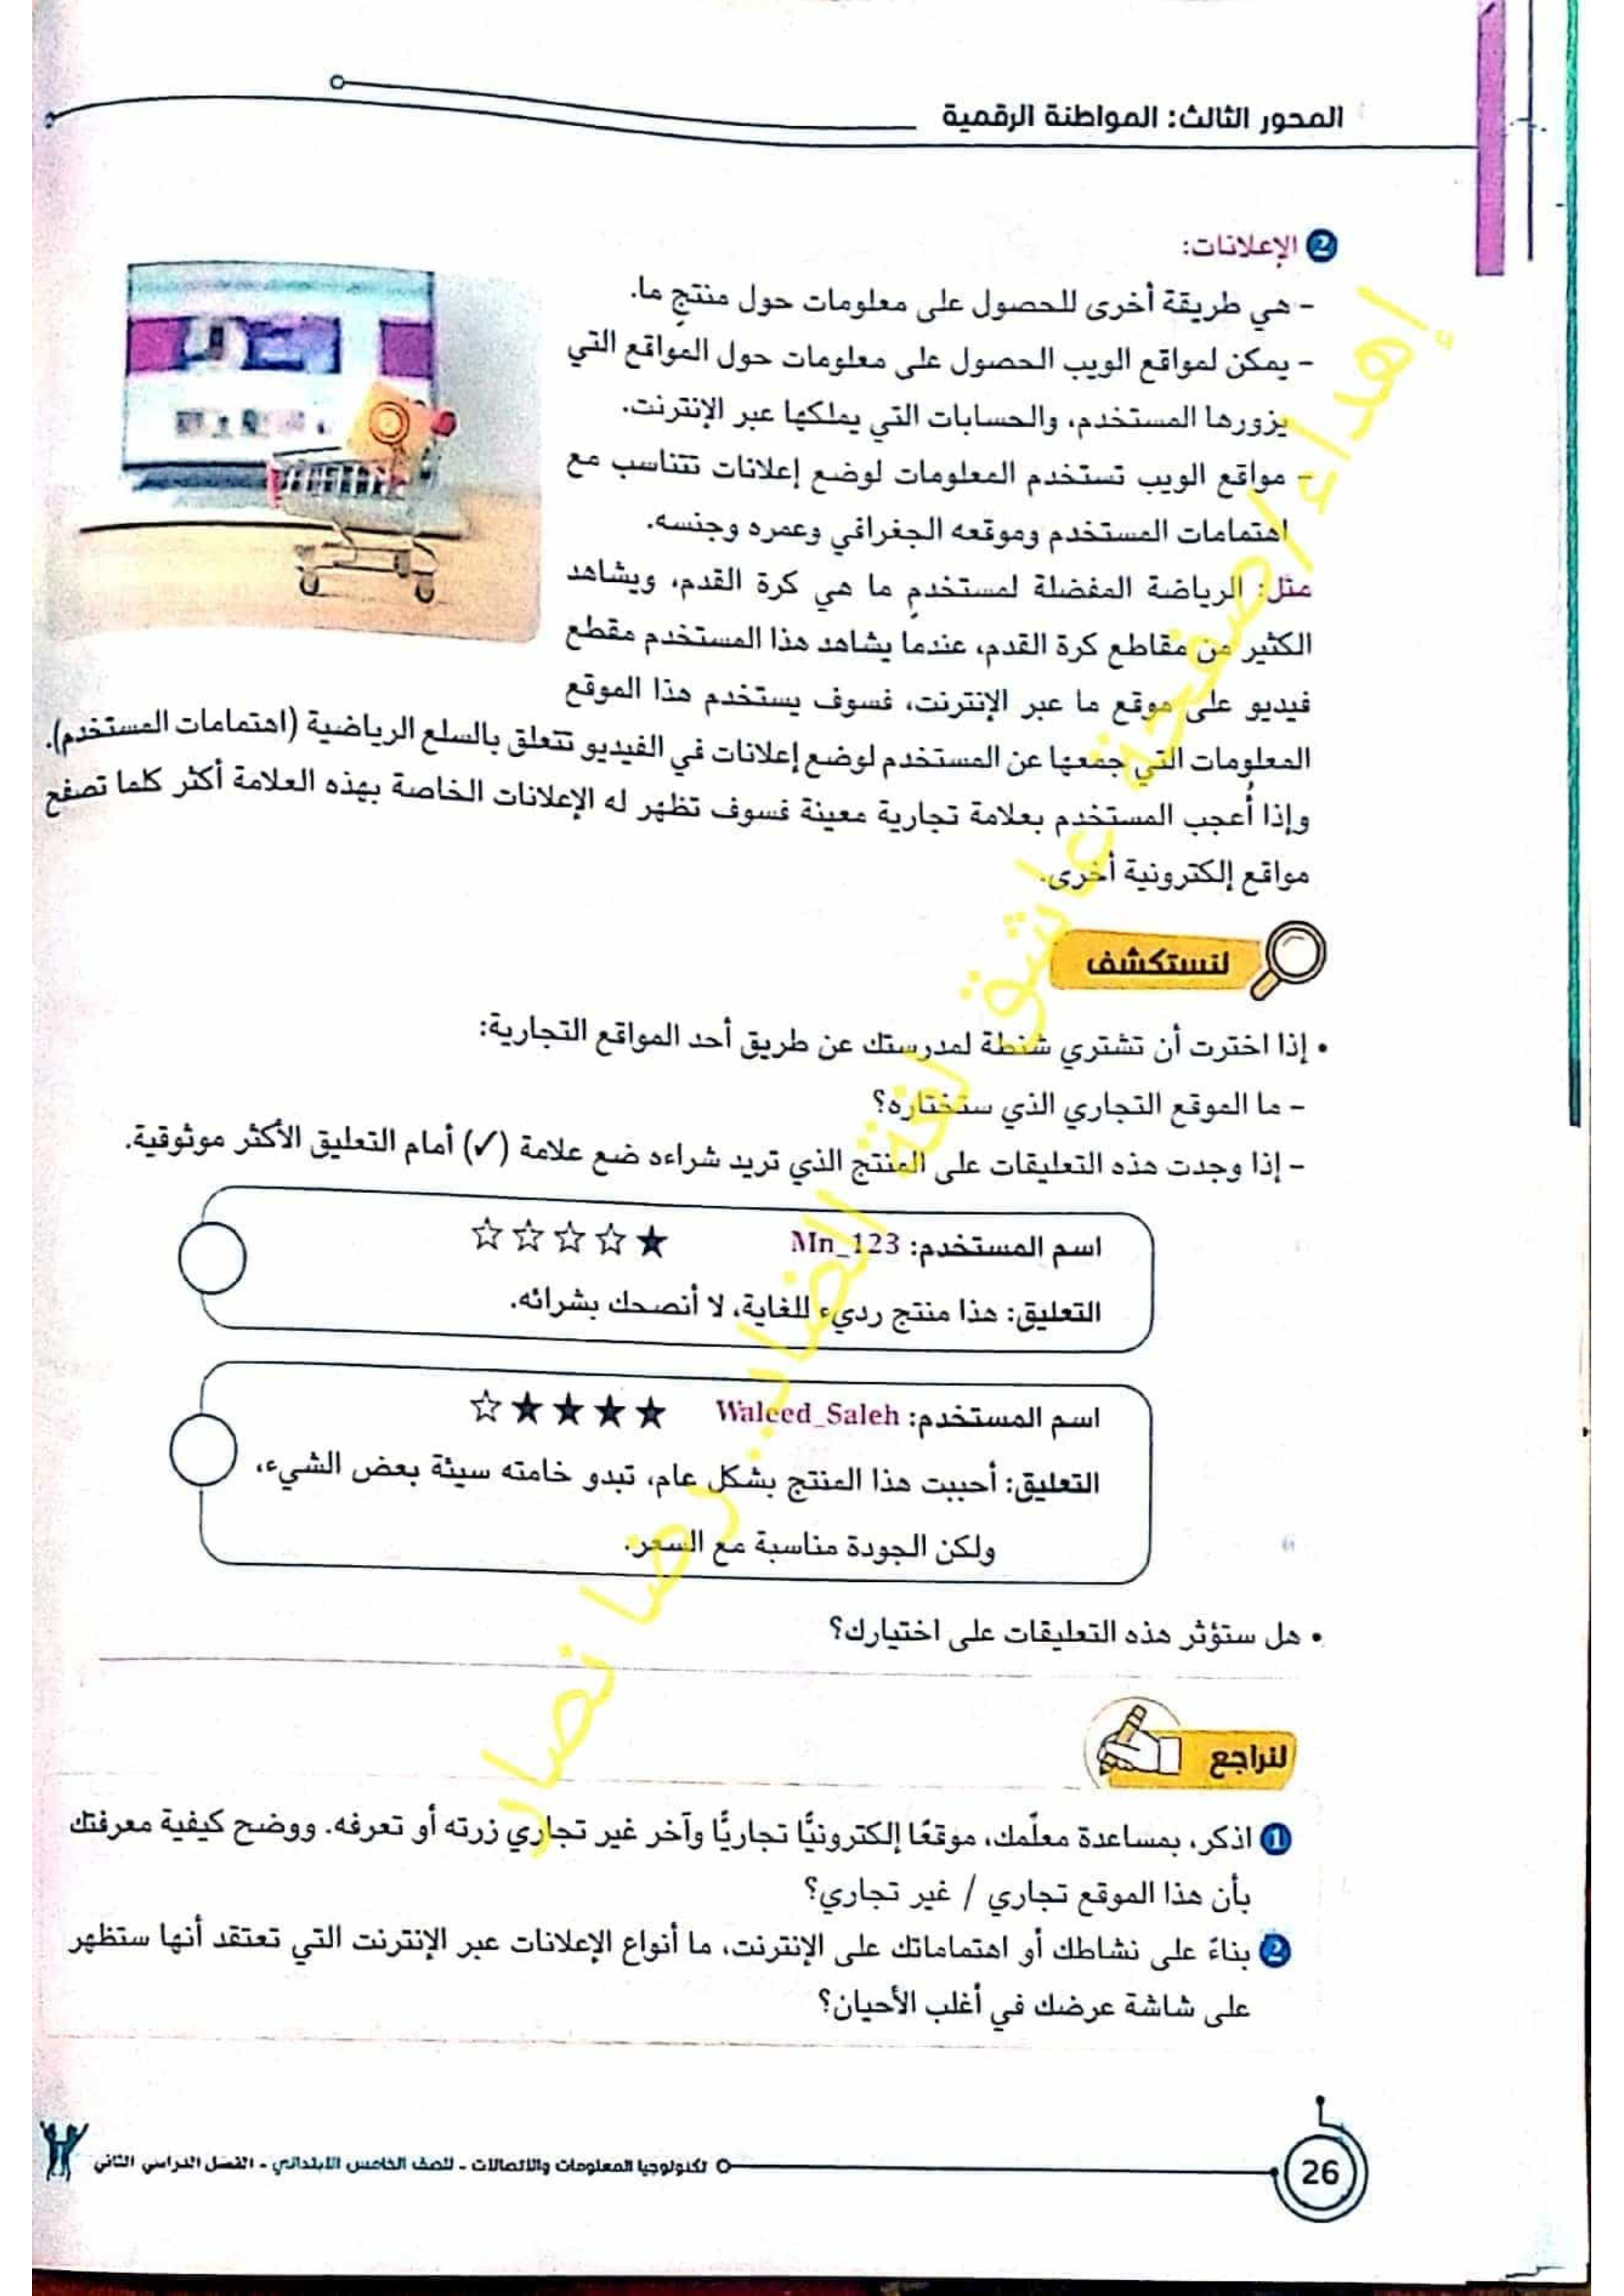 المحور الثالث: المواطنة الرقمية
2 الإعلانات:
- هي طريقة أخرى للحصول على معلومات حول منتجٍ ما.
- يمكن لمواقع الويب الحصول على معلومات حول المواقع التي
يزورها المستخدم، والحسابات التي يملكها عبر الإنترنت.
- مواقع الويب تستخدم المعلومات لوضع إعلانات تتناسب مع
اهتمامات المستخدم وموقعه الجغرافي وعمره وجنسه.
مثل: الرياضة المفضلة لمستخدمٍ ما هي كرة القدم، ويشاهد
الكثير من مقاطع كرة القدم، عندما يشاهد هذا المستخدم مقطع
فيديو على موقع ما عبر الإنترنت، فسوف يستخدم هذا الموقع
المعلومات التي جمعها عن المستخدم لوضع إعلانات في الفيديو تتعلق بالسلع الرياضية (اهتمامات المستخدم).
وإذا أُعجب المستخدم بعلامة تجارية معينة فسوف تظهر له الإعلانات الخاصة بهذه العلامة أكثر كلما تصفح
مواقع إلكترونية أخرى.
لنستكشف
• إذا اخترت أن تشتري شنطة لمدرستك عن طريق أحد المواقع التجارية:
- ما الموقع التجاري الذي ستختاره؟
- إذا وجدت هذه التعليقات على المنتج الذي تريد شراءه ضع علامة (✓) أمام التعليق الأكثر موثوقية.
اسم المستخدم: Mn_123 ★☆☆☆☆
التعليق: هذا منتج رديء للغاية، لا أنصحك بشرائه.
اسم المستخدم: Waleed_Saleh ★★★★☆
التعليق: أحببت هذا المنتج بشكل عام، تبدو خامته سيئة بعض الشيء،
ولكن الجودة مناسبة مع السعر.
• هل ستؤثر هذه التعليقات على اختيارك؟
لنراجع
1 اذكر، بمساعدة معلّمك، موقعًا إلكترونيًّا تجاريًّا وآخر غير تجاري زرته أو تعرفه. ووضح كيفية معرفتك
بأن هذا الموقع تجاري / غير تجاري؟
2 بناءً على نشاطك أو اهتماماتك على الإنترنت، ما أنواع الإعلانات عبر الإنترنت التي تعتقد أنها ستظهر
على شاشة عرضك في أغلب الأحيان؟
26 تكنولوجيا المعلومات والاتصالات - للصف الخامس الابتدائي - الفصل الدراسي الثاني
إهداء/صفحة عاشق لغة الضاد..رضا نصار